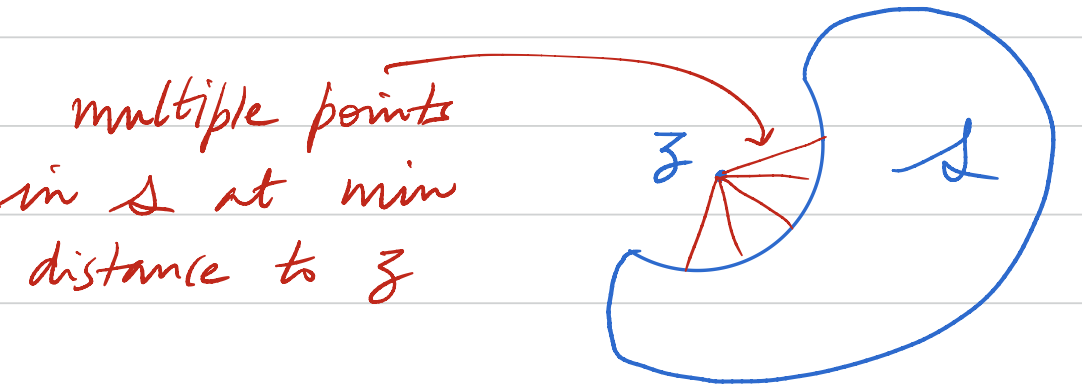 multiple points
in S at min
distance to z
z
S